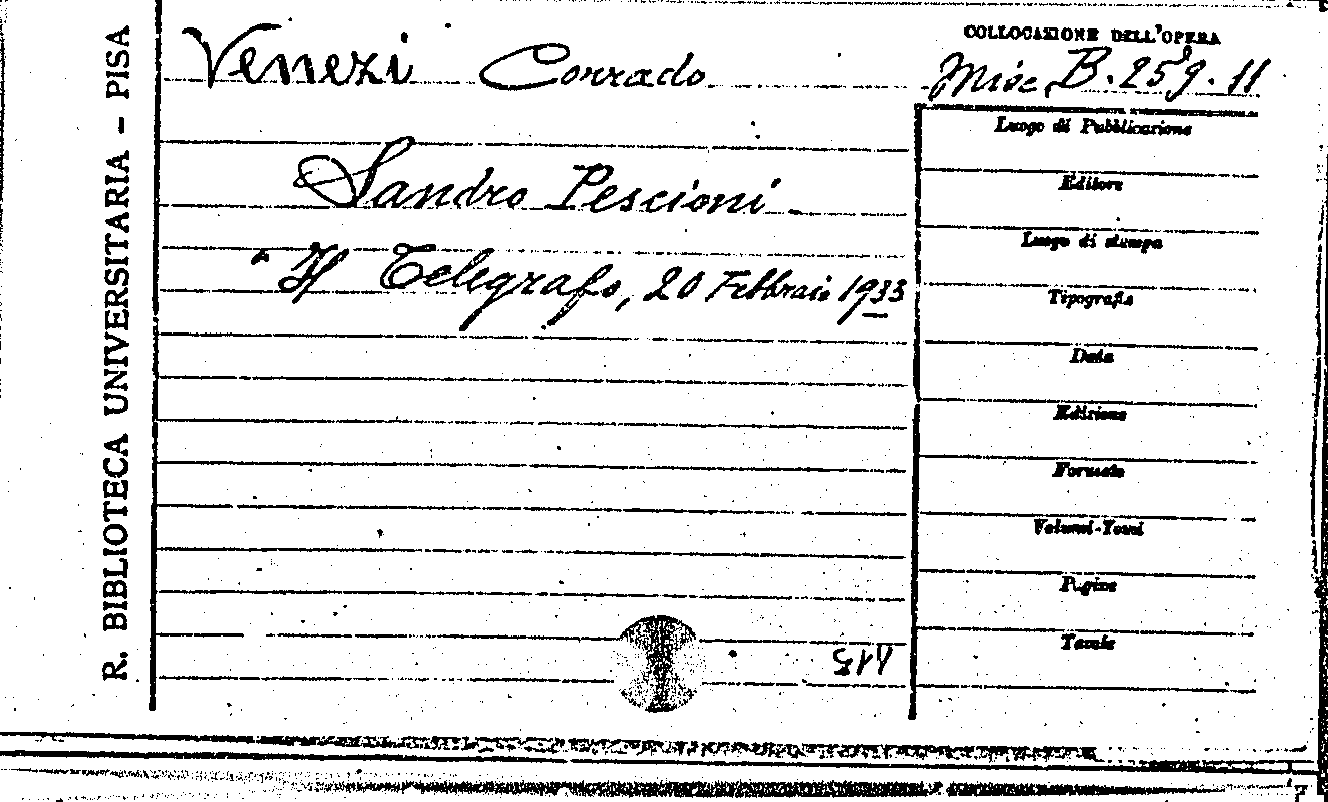 R. BIBLIOTECA UNIVERSITARIA – PISA
Venezi Corrado
COLLOCAZIONE DELL'OPERA
Misc. B. 259. 11
Sandro Pescioni
Il Telegrafo, 20 Febbraio 1933
Luogo di Pubblicazione
Editore
Luogo di stampa
Tipografia
Data
Edizione
Formato
Volumi-Tomi
Pagine
Tavole